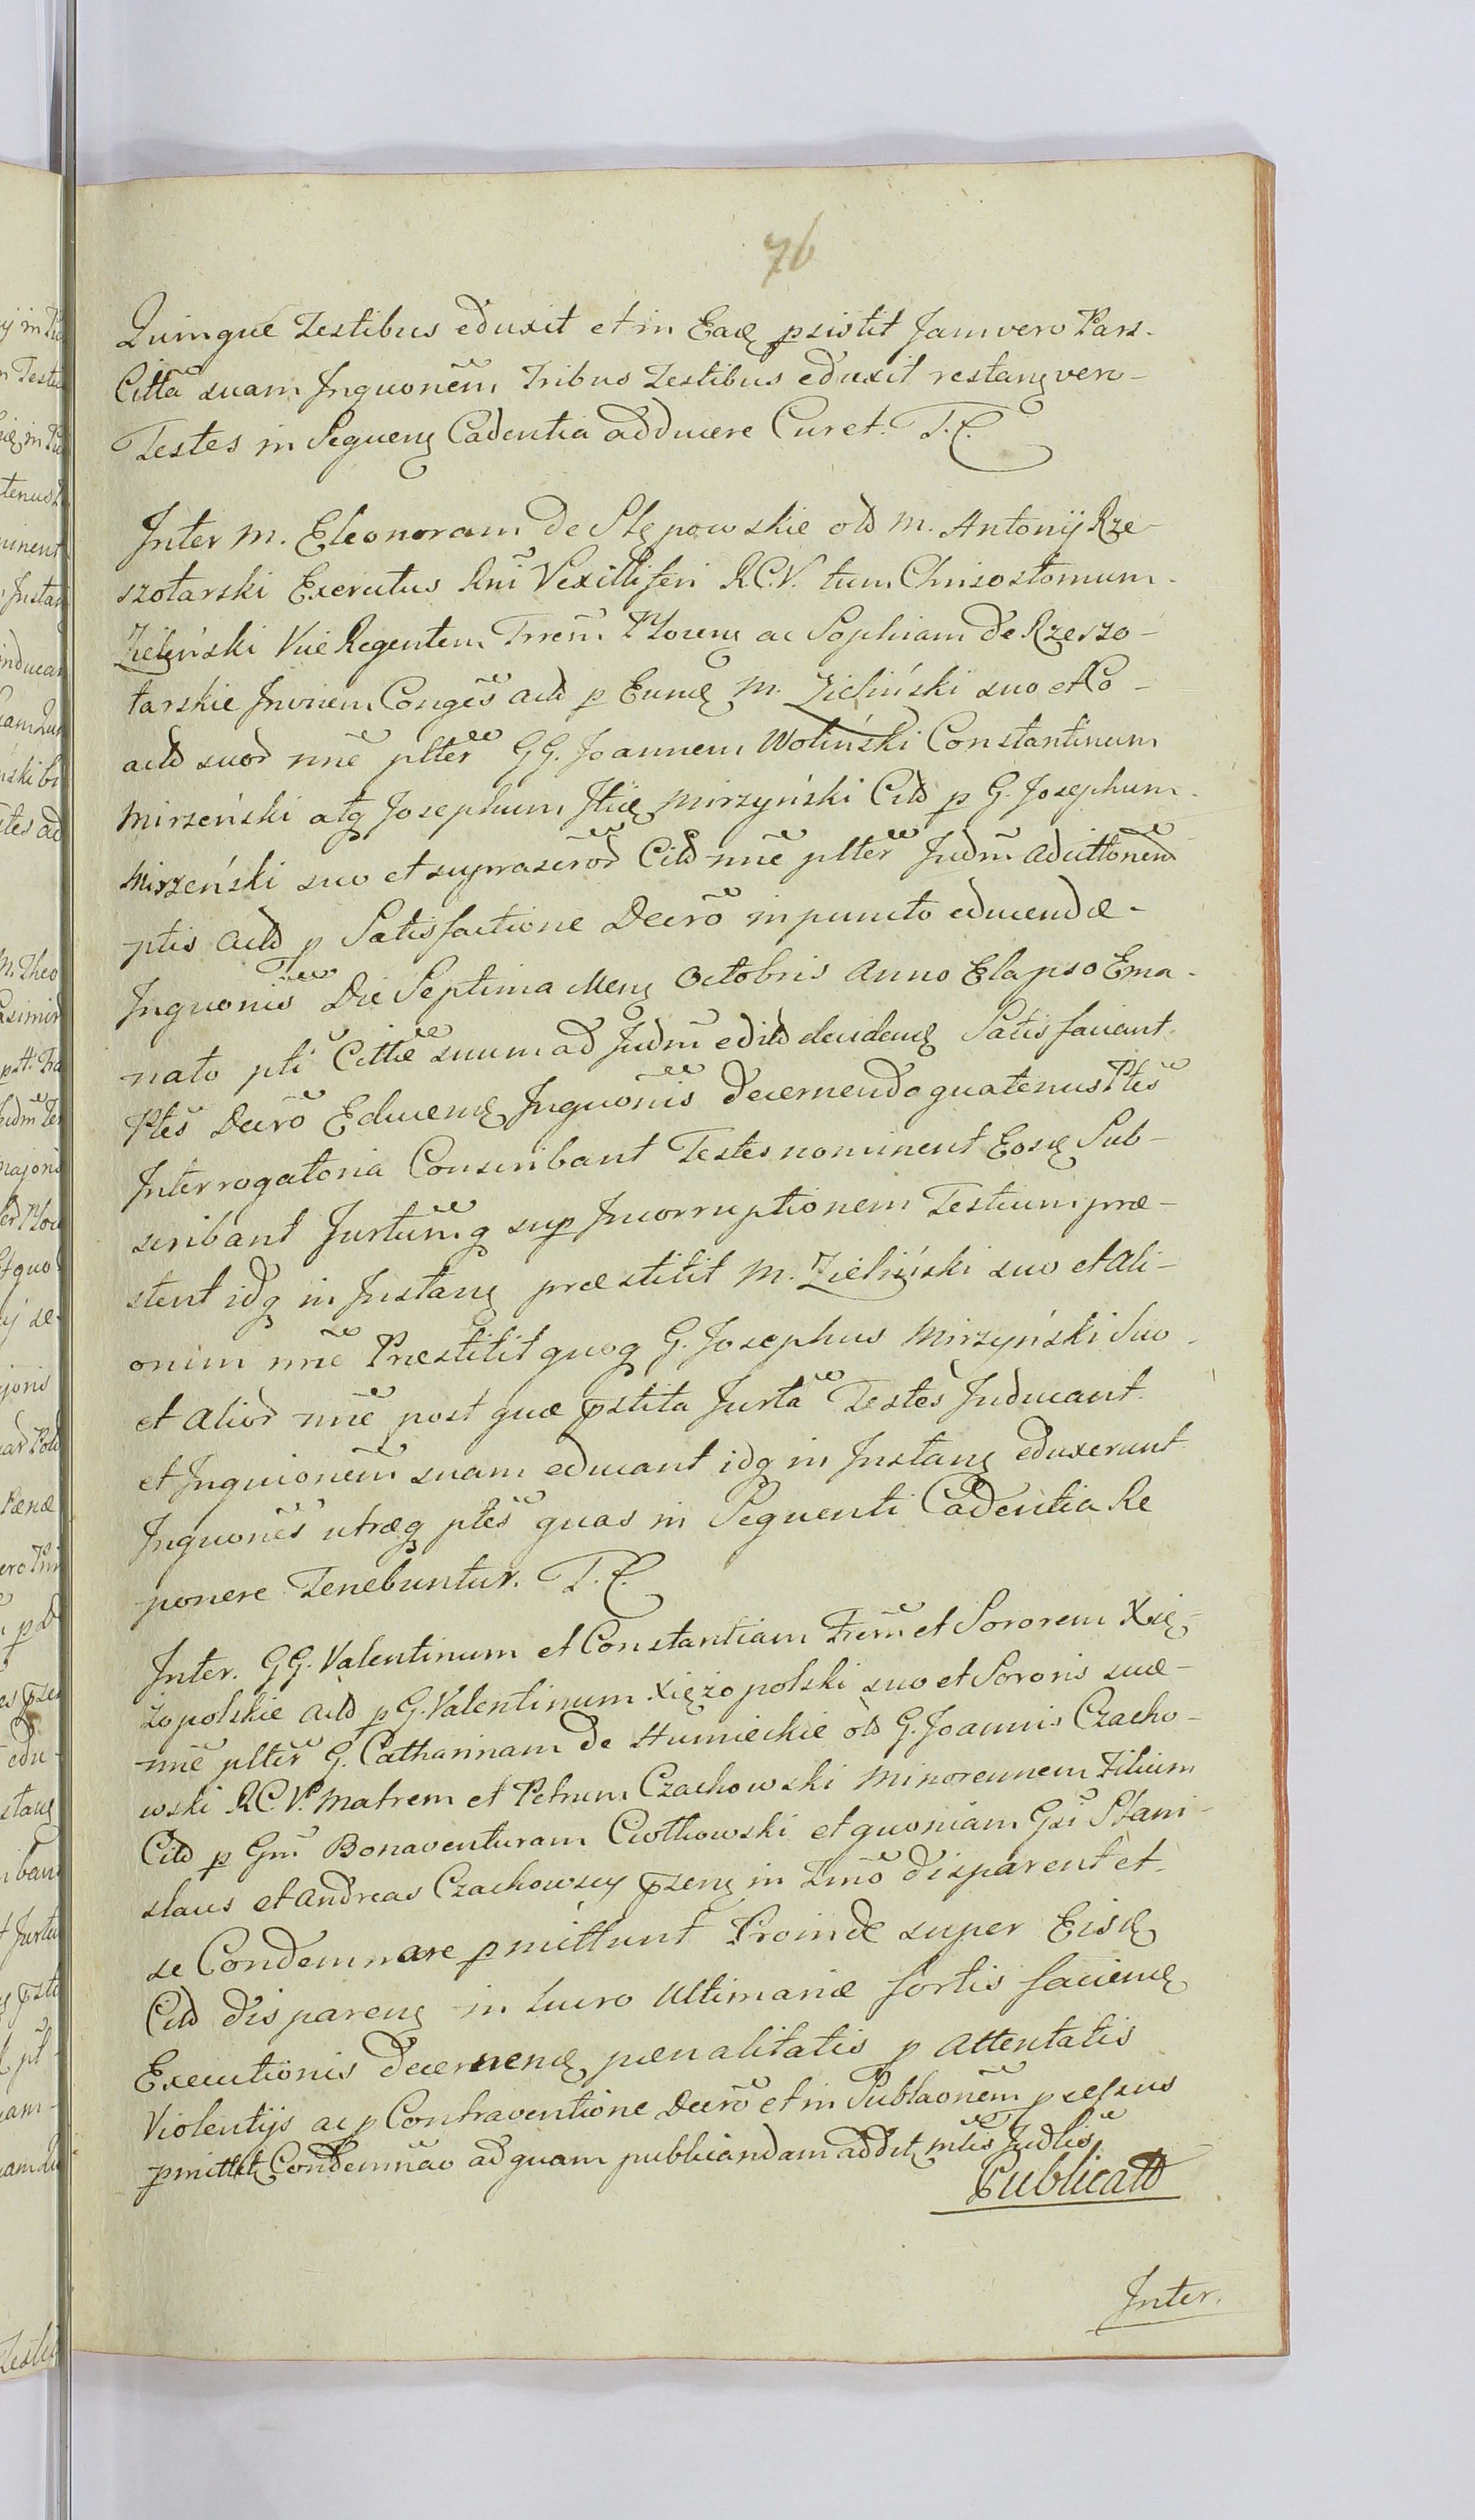 76
Quinque Testibus eduxit et in Eadę psistit Jam vero Pars-
Citta suam Inquonem̃ Tribus Testibus eduxit restanę vero-
Testes in Sequenę Cadentia adducere Curet. T. C.
Inter M. Eleonoram de Stępowskie old M. Antonij Rze-
szotarski Exercitus Rni Vexilliferi R.C.V. tum Chrisostomum-
Zieliński Vice Regentem Trrem̃ Plocenę ac Sophiam de Rzeszo-
tarskie Invicem Conges actd p Eundę M. Zieliński suo et Co-
actd suor nne plter GG. Joannem Woliński Constantinum
Mirzeński atq Josephum Itię Mirzyński Citd p G. Josephum-
Mirzeński suo et suprascror Citd nne plter Judm̃ ad cittonem
ptis actd p Satisfactione Decro in puncto educendæ-
Inquonis Die Septima Menę Octobris Anno Elapso Ema-
nato pti Cittæ suum ad Judm̃ editd decidendę Satisfaciant
Ptes Decro Educendę Inquonis decernendo quatenus Ptes
Interrogatoria Conscribant Testes nominent Eosdę Sub-
scribant Jurtum̃q sup Incorruptionem Testium præ-
stent idq in Instanę præstitit M. Zieliński suo et Ali-
onim nne Præstitit quoq G. Josephus Mirzyński Suo-
et alior nne post quæ pstita Jurta Testes Inducant
et Inquionem̃ suam educant idq in Instanę eduxerunt
Inquones utræq ptes quas in Sequenti Cadentia Re
ponere Tenebuntur. T. C.
Inter. GG. Valentinum et Constantiam Frem̃ et Sororem Xię-
żopolskie actd p G. Valentinum Xiężopolski suo et Sororis suæ-
nne plter G. Catharinam de Humieckie old G. Joannis Czacho-
wski R.C.V. Matrem et Petrum Czachowski Minorennem Filium
Citd p Gm̃ Bonaventuram Ciotkowski et quoniam Gsi Stani-
slaus et Andreas Czachowscy pzenę in Tmo disparent et-
se Condemnare pmittunt Proinde super Eisdę
Citd disparenę in Lucro Ultimariæ sortis faciendę
Executionis decernendę pænalitatis p attentatis
Violentijs ac p Contraventione Decro et in Publaonem̃ p
pmittit Condemnao ad quam publicandam addit mtis Judlis
Publicatd
Inter.